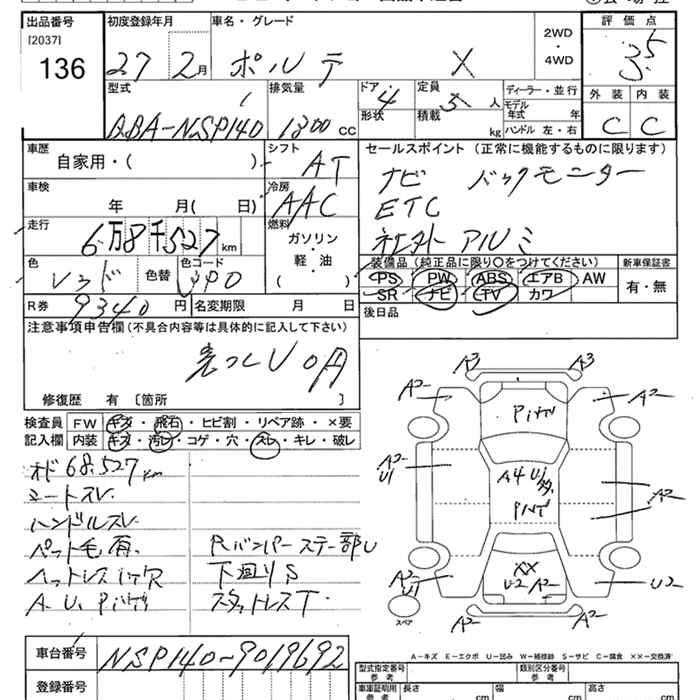 出品番号
[2037]
136
初度登録年月
27 2月
車名・グレード
ポルテ X
2WD
・
4WD
評価点
3.5
外装 内装
C C
型式
ABA-NSP140
排気量
1300 CC
ドア 4
形状
定員 5人
積載 kg
ディーラー・並行
モデル
年式 年
ハンドル 左・右
車歴
自家用・( )
シフト
AT
車検
年 月( 日)
冷房
AAC
走行
6万8千527km
燃料
ガソリン
・
軽・油
( )
色
レッド
色替
色コード
R券 9340円
名変期限 月 日
セールスポイント (正常に機能するものに限ります)
ナビ バックモニター
ETC
社外アルミ
装備品 (純正品に限り○をつけてください)
PS PW ABS エアB AW
SR ナビ TV カワ
新車保証書
有・無
後日品
注意事項申告欄(不具合内容等は具体的に記入して下さい)
修復歴 有 〔箇所 〕
検査員
記入欄
FW キズ・飛石・ヒビ割・リペア跡・×要
内装 キズ・汚レ・コゲ・穴・スレ・キレ・破レ
オド 68.527km
シートスレ
ハンドルスレ
ペット毛有
ヘッドレスト穴
A.U.Pいずれ
Rバンパーステー部U
下廻りS
スタッドレスT
A3 A3
A2 A2
A2
U1
A4
A2
A2
U1
XX
U2 A2
U2
A2 A2
スペア
A-キズ E-エクボ U-凹み W-補修跡 S-サビ C-腐食 XX-交換済
車台番号
NSP140-9019692
登録番号
型式指定番号
参考
類別区分番号
参考
車庫証明用
参考
長さ cm
幅 cm
高さ cm